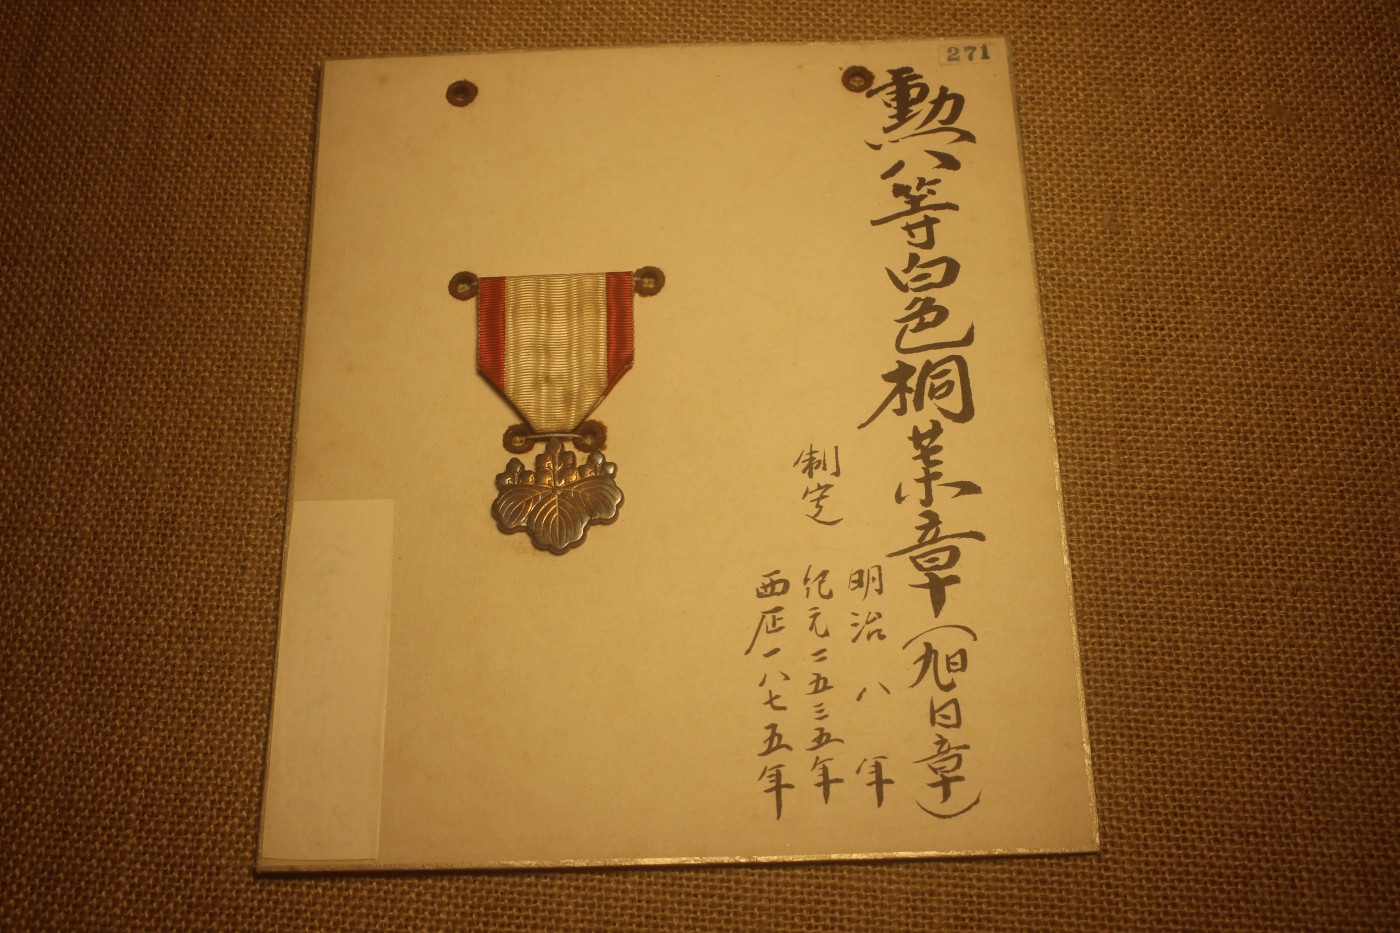 271
勲八等白色桐葉章(旭日章)
制定
明治八年
紀元二五三五年
西历一八七五年